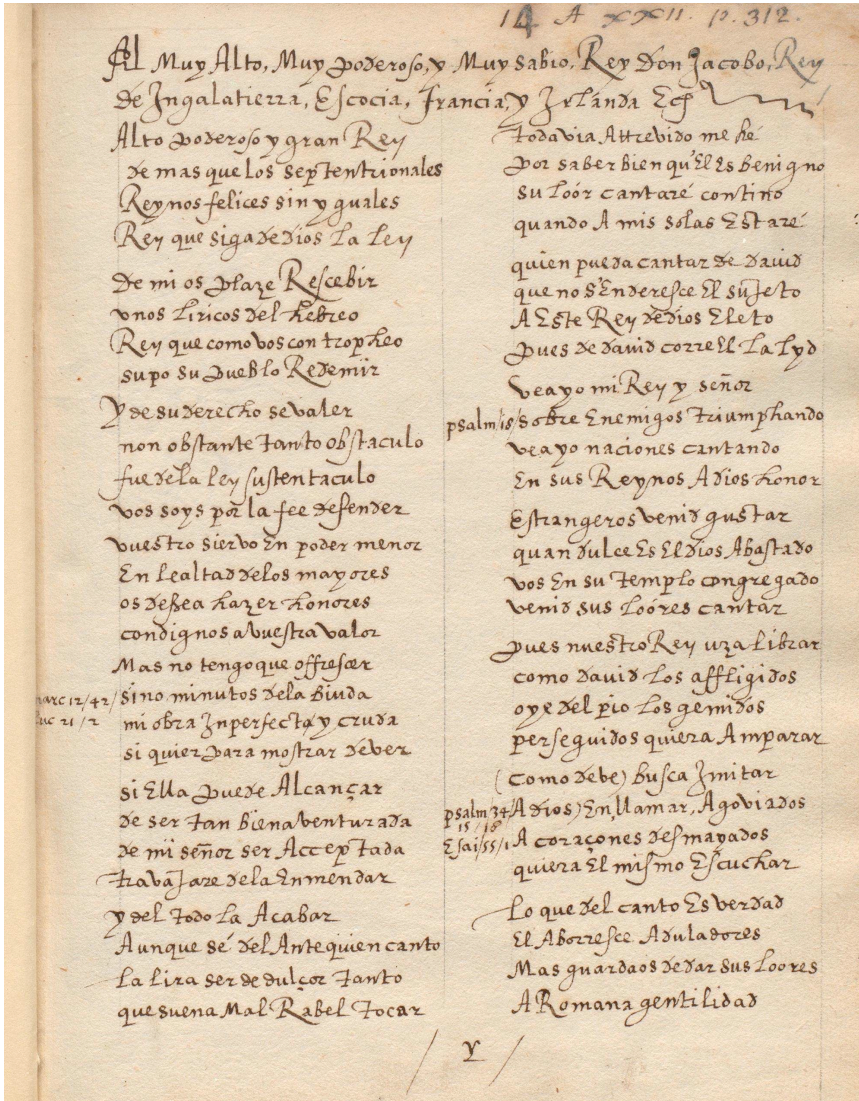 14 A XXII. p. 312.
Al Muy Alto, Muy poderoso, y Muy sabio, Rey don Jacobo, Rey
de Ingalatierra, Escocia, Francia, y Irlanda Ec
Alto poderoso y gran Rey
de mas que los septentrionales
Reynos felices sin yguales
Rey que siga de dios la ley
de mi os plaze Rescebir
unos liricos del hebreo
Rey que como vos con tropheo
supo su pueblo Redemir
y de su derecho se valer
non obstante tanto obstaculo
fue de la ley sustentaculo
vos soys por la fee defender
vuestro siervo En poder menor
En lealtad de los mayores
os dessea hazer honores
condignos a vuestra valor
Mas no tengo que offrescer
marc 12/42/ sino minutos dela biuda
Luc 21/2 mi obra Inperfecta y cruda
si quier para mostrar dever
si Ella puede Alcançar
de ser tan bienaventurada
de mi señor ser Acceptada
travaJare dela Enmendar
y del todo la Acabar
Aunque sé del Ante quien canto
la lira ser de dulçor tanto
que suena Mal Rabel tocar
todavia Attrevido me hé
por saber bien qu'El Es benigno
su loór cantaré contino
quando A mis solas Estaré
quien pueda cantar de david
que no s'Enderesce El suJeto
A Este Rey de dios Eleto
pues de david corre El la lyd
vea yo mi Rey y señor
psalm/18/ sobre Enemigos triumphando
vea yo naciones cantando
En sus Reynos A dios honor
Estrangeros venid gustar
quan dulce Es El dios Abastado
vos En su templo congregado
venid sus loóres cantar
pues nuestro Rey uza librar
como david los affligidos
oye del pio los gemidos
perseguidos quiera Amparar
(como debe) busca Imitar
psalm/34/ A dios) En llamar, Agoviados
15/18
Esai/55/1 A coraçones desmayados
quiera El mismo Escuchar
lo que del canto Es verdad
El Aborresce Aduladores
Mas guardaos de dar sus loores
A Romana gentilidad
/ y /